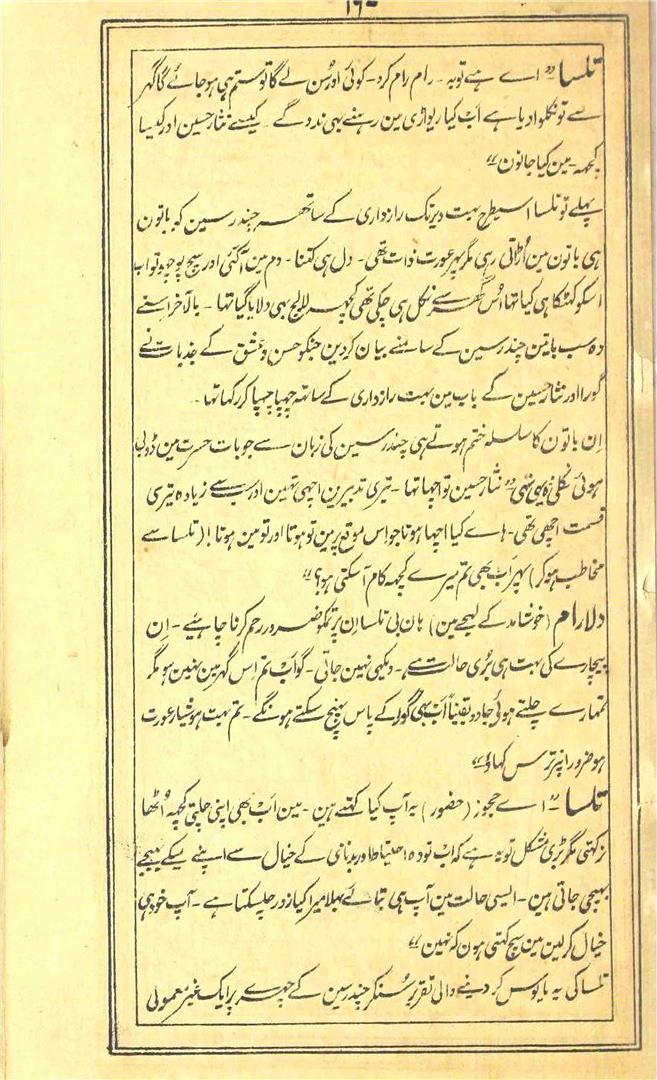 ۱۶۰
تلسا "اے ہے توبہ ۔ رام رام کرد ۔ کوئی اور سُن لے گا تو ستم ہی ہو جائے گا گھر
سے تو نکلوا دیا ہے اَب کیا ریواڑی مین رہنے بھی ندو گے ۔ کیسے نثار حسین اور کیسا
کچھہ ۔ مین کیا جانون"
پہلے تو تلسا اسیطرح بہت دیر تک رازداری کے ساتھہ چندر سین کو باتون
ہی باتون مین اُڑاتی رہی مگر پھر عورت ذات تھی ۔ دل ہی کتنا ۔ دم مین آگئی اور سچ پوچھو تو اب
اسکو کھٹکا ہی کیا تھا اُس گھر سے نکل ہی چکی تھی کچھہ لالچ بھی دلایا گیا تھا ۔ بالآخر اسنے
وہ سب باتین چندر سین کے سامنے بیان کر دین جنکو حسن و عشق کے جذبات نے
گورا اور نثار حسین کے باب مین بہت رازداری کے ساتھ چھپا چھپا کر رکھا تھا ۔
اِن باتون کا سلسلہ ختم ہوتے ہی چندر سین کی زبان سے جو بات حسرت مین ڈوبی
ہوئی نکلی وہ یہی تھی "نثار حسین تو اچھا تھا ۔ تیری تدبیرین اچھی تھین اور سب سے زیادہ تیری
قسمت اچھی تھی ۔ ہاے کیا اچھا ہوتا جو اس موقع پر مین تو ہوتا اور تو مین ہوتا !( تلسا سے
مخاطب ہو کر ) پھر اَب بھی تم میرے کچھہ کام آسکتی ہو؟"
دلا رام (خوشامد کے لہجے مین) ہان بی تلسا اِن پر تمکو ضرور رحم کرنا چاہئیے ۔ اِن
بیچارے کی بہت ہی بُری حالت ہے ۔ دیکھی نہین جاتی ۔ گو اَب تم اِس گھر مین نہین ہو مگر
تمہارے چلتے ہوئے جادو یقیناً اَب بھی گورا کے پاس پہنچ سکتے ہونگے ۔ تم بہت ہوشیار عورت
ہو ضرور انپر ترس کھاؤ"
تلسا "اے حجوز (حضور) یہ آپ کیا کہتے ہین ۔ مین اَب بھی اپنی چلتی کچھہ اُٹھا
نرکھتی مگر بڑی مشکل تو یہ ہے کہ اب تو وہ احتیاطاً اور بدنامی کے خیال سے اپنے میکے بھیجے
بھیجی جاتی ہین ۔ ایسی حالت مین آپ ہی بتائے بھلا میرا کیا زور چلسکتا ہے ۔ آپ خود ہی
خیال کر لین مین سچ کہتی ہون کہ نہین"
تلسا کی یہ مایوس کر دینے والی تقریر سُنکر چندر سین کے چہرے پر ایک غیر معمولی